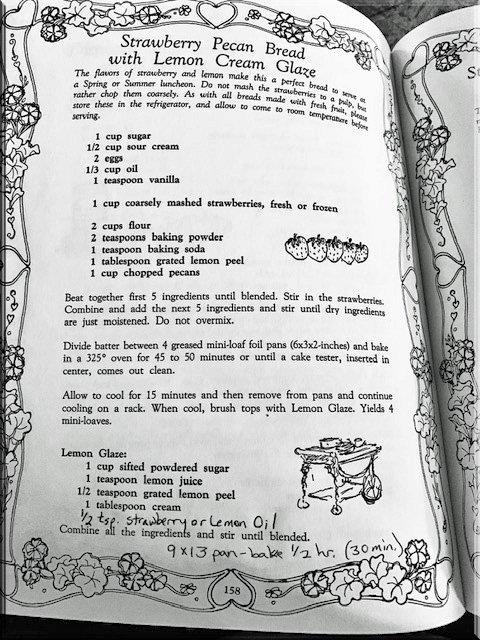 Strawberry Pecan Bread
with Lemon Cream Glaze
The flavors of strawberry and lemon make this a perfect bread to serve at
a Spring or Summer luncheon. Do not mash the strawberries to a pulp, but
rather chop them coarsely. As with all breads made with fresh fruit, please
store these in the refrigerator, and allow to come to room temperature before
serving.
1 cup sugar
1/2 cup sour cream
2 eggs
1/3 cup oil
1 teaspoon vanilla
1 cup coarsely mashed strawberries, fresh or frozen
2 cups flour
2 teaspoons baking powder
1 teaspoon baking soda
1 tablespoon grated lemon peel
1 cup chopped pecans
Beat together first 5 ingredients until blended. Stir in the strawberries.
Combine and add the next 5 ingredients and stir until dry ingredients
are just moistened. Do not overmix.
Divide batter between 4 greased mini-loaf foil pans (6x3x2-inches) and bake
in a 325° oven for 45 to 50 minutes or until a cake tester, inserted in
center, comes out clean.
Allow to cool for 15 minutes and then remove from pans and continue
cooling on a rack. When cool, brush tops with Lemon Glaze. Yields 4
mini-loaves.
Lemon Glaze:
1 cup sifted powdered sugar
1 teaspoon lemon juice
1/2 teaspoon grated lemon peel
1 tablespoon cream
1/2 tsp. strawberry or Lemon Oil
Combine all the ingredients and stir until blended.
9x13 pan-bake 1/2 hr. (30 min.)
158